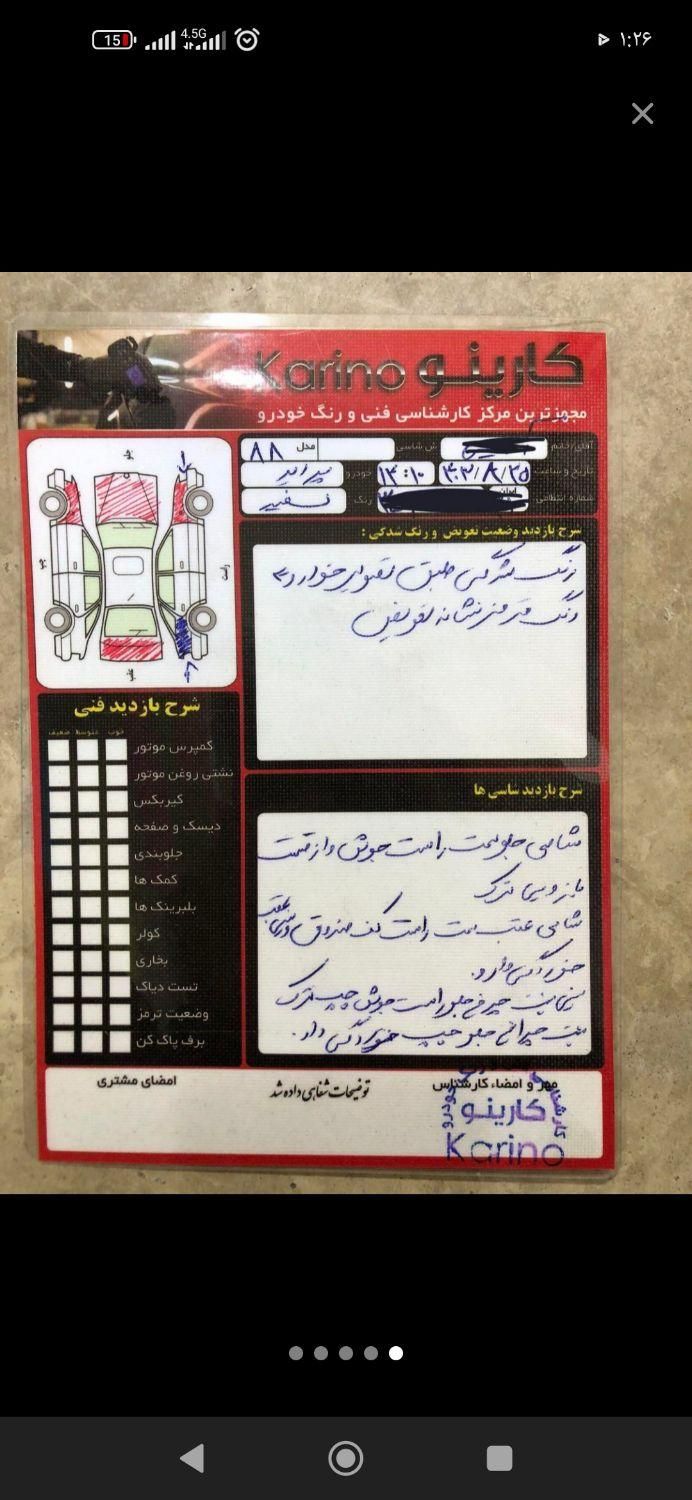 ۱:۲۶
4.5G
15
کارینو Karino
مجهزترین مرکز کارشناسی فنی و رنگ خودرو
آقای/خانم ش شاسی مدل ۸۸
تاریخ و ساعت ۴۰۳/۸/۲۵ ۱۴:۱۰ خودرو پراید
شماره انتظامی ایران رنگ سفید
شرح بازدید وضعیت تعویض و رنگ شدگی :
رنگ
رنگ قرمز نشانه تعویض
شرح بازدید فنی
خوب متوسط ضعیف
کمپرس موتور
نشتی روغن موتور
گیربکس
دیسک و صفحه
جلوبندی
کمک ها
بلبرینگ ها
کولر
بخاری
تست دیاگ
وضعیت ترمز
برف پاک کن
شرح بازدید ساسی ها
شاسی جلو سمت راست جوش و از قسمت
ترک
شاسی عقب سمت راست کف صندوق
خوردگی دارد.
چرخ جلو راست جوش چپ ترک
جلو چپ خوردگی دارد.
مهر و امضاء کارشناس
توضیحات شفاهی داده شد
امضای مشتری
کارینو
Karino